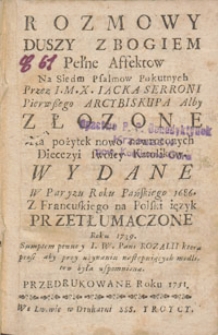 ROZMOWY
DUSZY Z BOGIEM
Pełne Affektow
Na Siedm Psalmow Pokutnych
Przez J.M.X. IACKA SERRONI
Pierwszego ARCYBISKUPA Alby
ZŁOZONE
Na pożytek nowo nawroconych
Dieczyi swoiey Katolikow.
WYDANE
W Paryzu Roku Pańskiego 1686.
Z Francuskiego na Polski język
PRZETŁUMACZONE
Roku 1739.
Sumptem pewney J. W. Pani ROZALII ktora
prosi aby przy używaniu następuiących modli-
tew była wspomniona.
PRZEDRUKOWANE Roku
We Lwowie w Drukarni SSS. TROYCY.